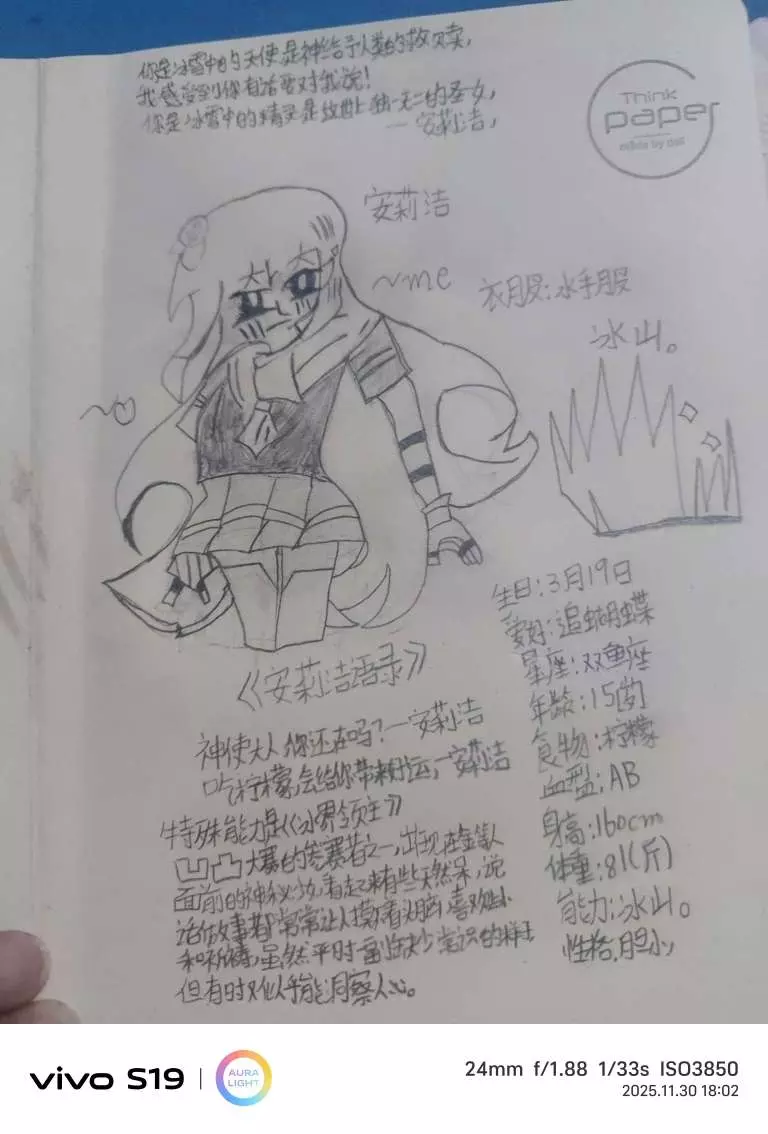 你是冰雪中的天使是神给予人类的救赎,
我感受到你有话要对我说!
你是冰雪中的精灵是这世上独一无二的圣女,
—安莉洁,
Think
paper
made by deli
安莉洁
~me
衣服:水手服
冰山。
生日:3月19日
爱好:追蝴蝶
星座:双鱼座
年龄:15岁
食物:柠檬
血型:AB
身高:160cm
体重:81(斤)
能力:冰山。
性格,胆小,
《安莉洁语录》
神使大人你还在吗?—安莉洁
吃柠檬,会给你带来好运,—安莉洁
特殊能力是《冰界领主》
凹凸大赛的参赛者之一,出现在金等人
面前的神秘少女,看起来有些天然呆,说
话做事都常常让人摸不着头脑,喜欢
和祈祷,虽然平时一副缺少常识的样子
但有时又似乎能洞察人心。
vivo S19
AURA
LIGHT
24mm f/1.88 1/33s ISO3850
2025.11.30 18:02